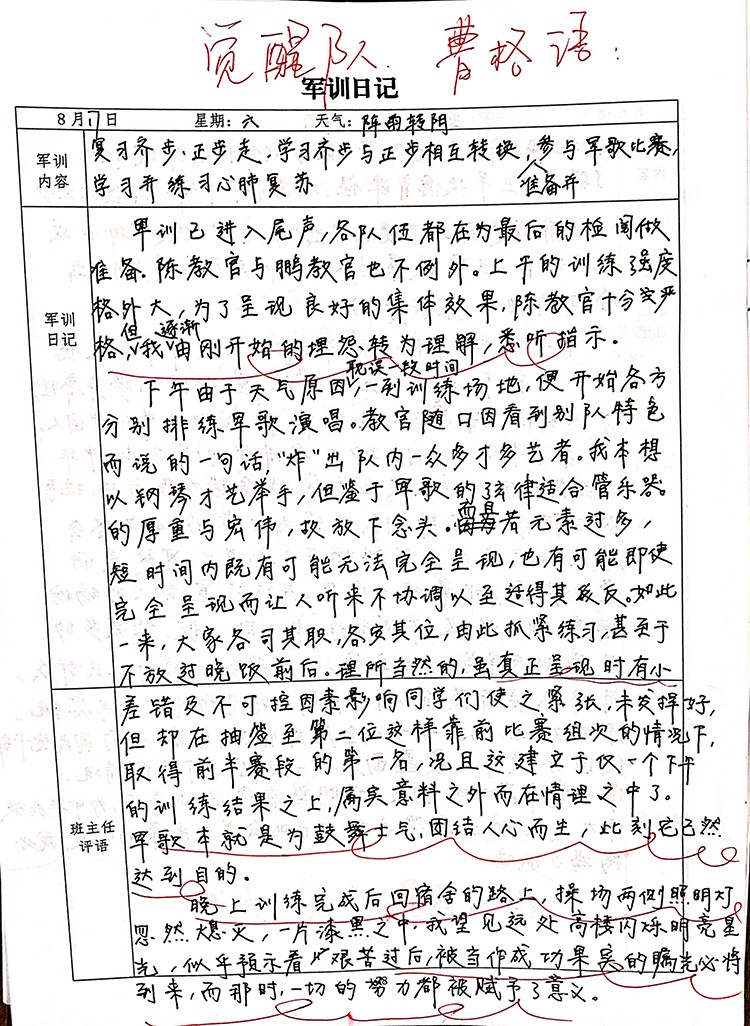 觉醒队 曹格语:
军训日记
8月17日 星期:六 天气:阵雨转阴
军训内容
复习齐步、正步走,学习齐步与正步相互转换,准备并参与军歌比赛,
学习并练习心肺复苏
军训日记
军训已进入尾声,各队伍都在为最后的检阅做
准备。陈教官与鹏教官也不例外。上午的训练强度
格外大,为了呈现良好的集体效果,陈教官十分严
格,但我逐渐由刚开始的埋怨转为理解,悉听指示。
下午由于天气原因,耽误一段时间,一到训练场地,便开始各方
分别排练军歌演唱。教官随口因看到别队特色
而说的一句话,“炸”出队内一众多才多艺者。我本想
以钢琴才艺举手,但鉴于军歌的弦律适合管乐器
的厚重与宏伟,故放下念头。而且若元素过多,
短时间内既有可能无法完全呈现,也有可能即使
完全呈现而让人听来不协调以至适得其反。如此
一来,大家各司其职,各安其位,由此抓紧练习,甚至于
不放过晚饭前后。理所当然的,虽真正呈现时有小
班主任评语
差错及不可控因素影响同学们使之紧张,未发挥好,
但却在抽签至第二位这样靠前比赛组次的情况下,
取得前半赛段的第一名,况且这建立于仅一个下午
的训练结果之上,属实意料之外而在情理之中了。
军歌本就是为鼓舞士气,团结人心而生,此刻它已然
达到目的。
晚上训练完成后回宿舍的路上,操场两侧照明灯
忽然熄灭,一片漆黑之中,我望见远处高楼闪烁明亮星
光,似乎预示着艰苦过后,被当作成功果实的曙光必将
到来,而那时,一切的努力都被赋予了意义。